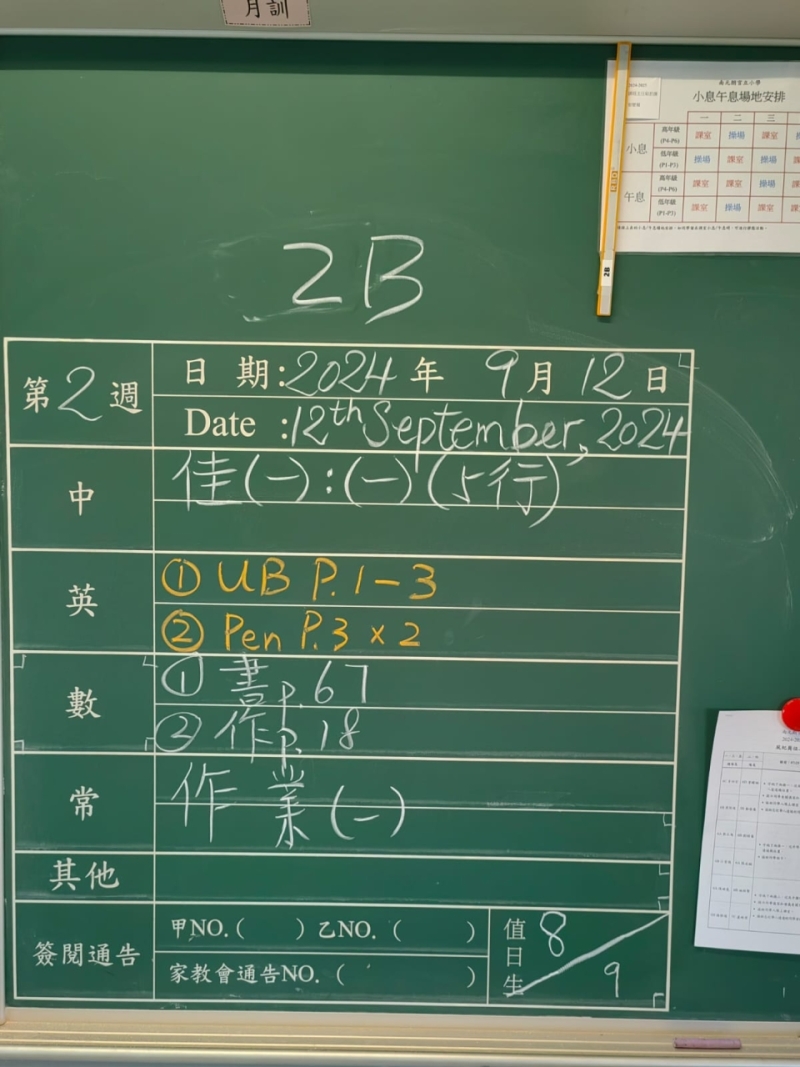 月訓
小息午息場地安排
一 二 三
小息 高年級 (P4-P6) 課室 操場 課室
低年級 (P1-P3) 操場 課室 操場
午息 高年級 (P4-P6) 課室 課室 操場
低年級 (P1-P3) 課室 操場 課室
2B
2B
第2週
日 期:2024年 9月12日
Date :12th September, 2024
中 佳(一):(一)(5行)
英 ① UB P.1-3
② Pen P.3 x 2
數 ① 書p.67
② 作p.18
常 作業(一)
其他
簽閱通告 甲NO.( ) 乙NO.( )
家教會通告NO.( )
值日生 8/9